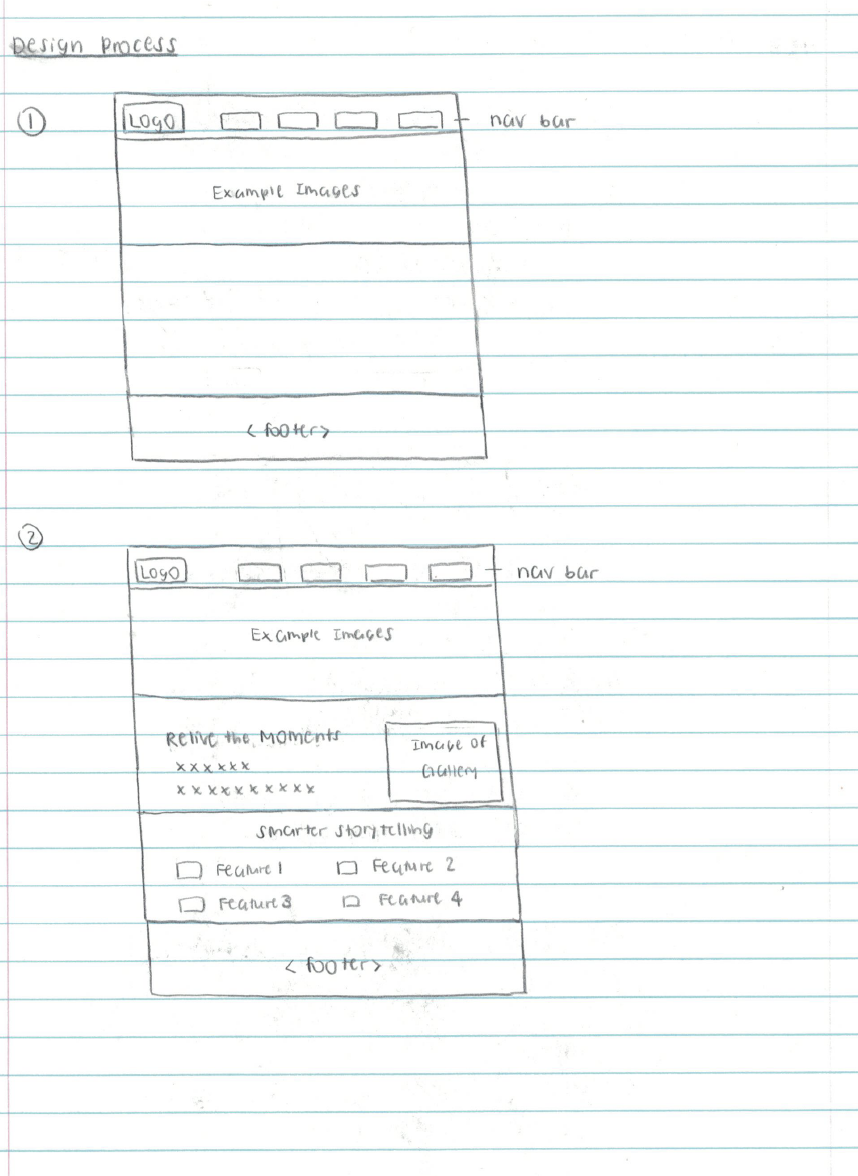 Design Process
1
LOGO
nav bar
Example Images
<footer>
2
LOGO
nav bar
Example Images
Relive the Moments
xxxxxx
xxxxxxxxxx
Image of
Gallery
Smarter storytelling
Feature 1
Feature 2
Feature 3
Feature 4
<footer>